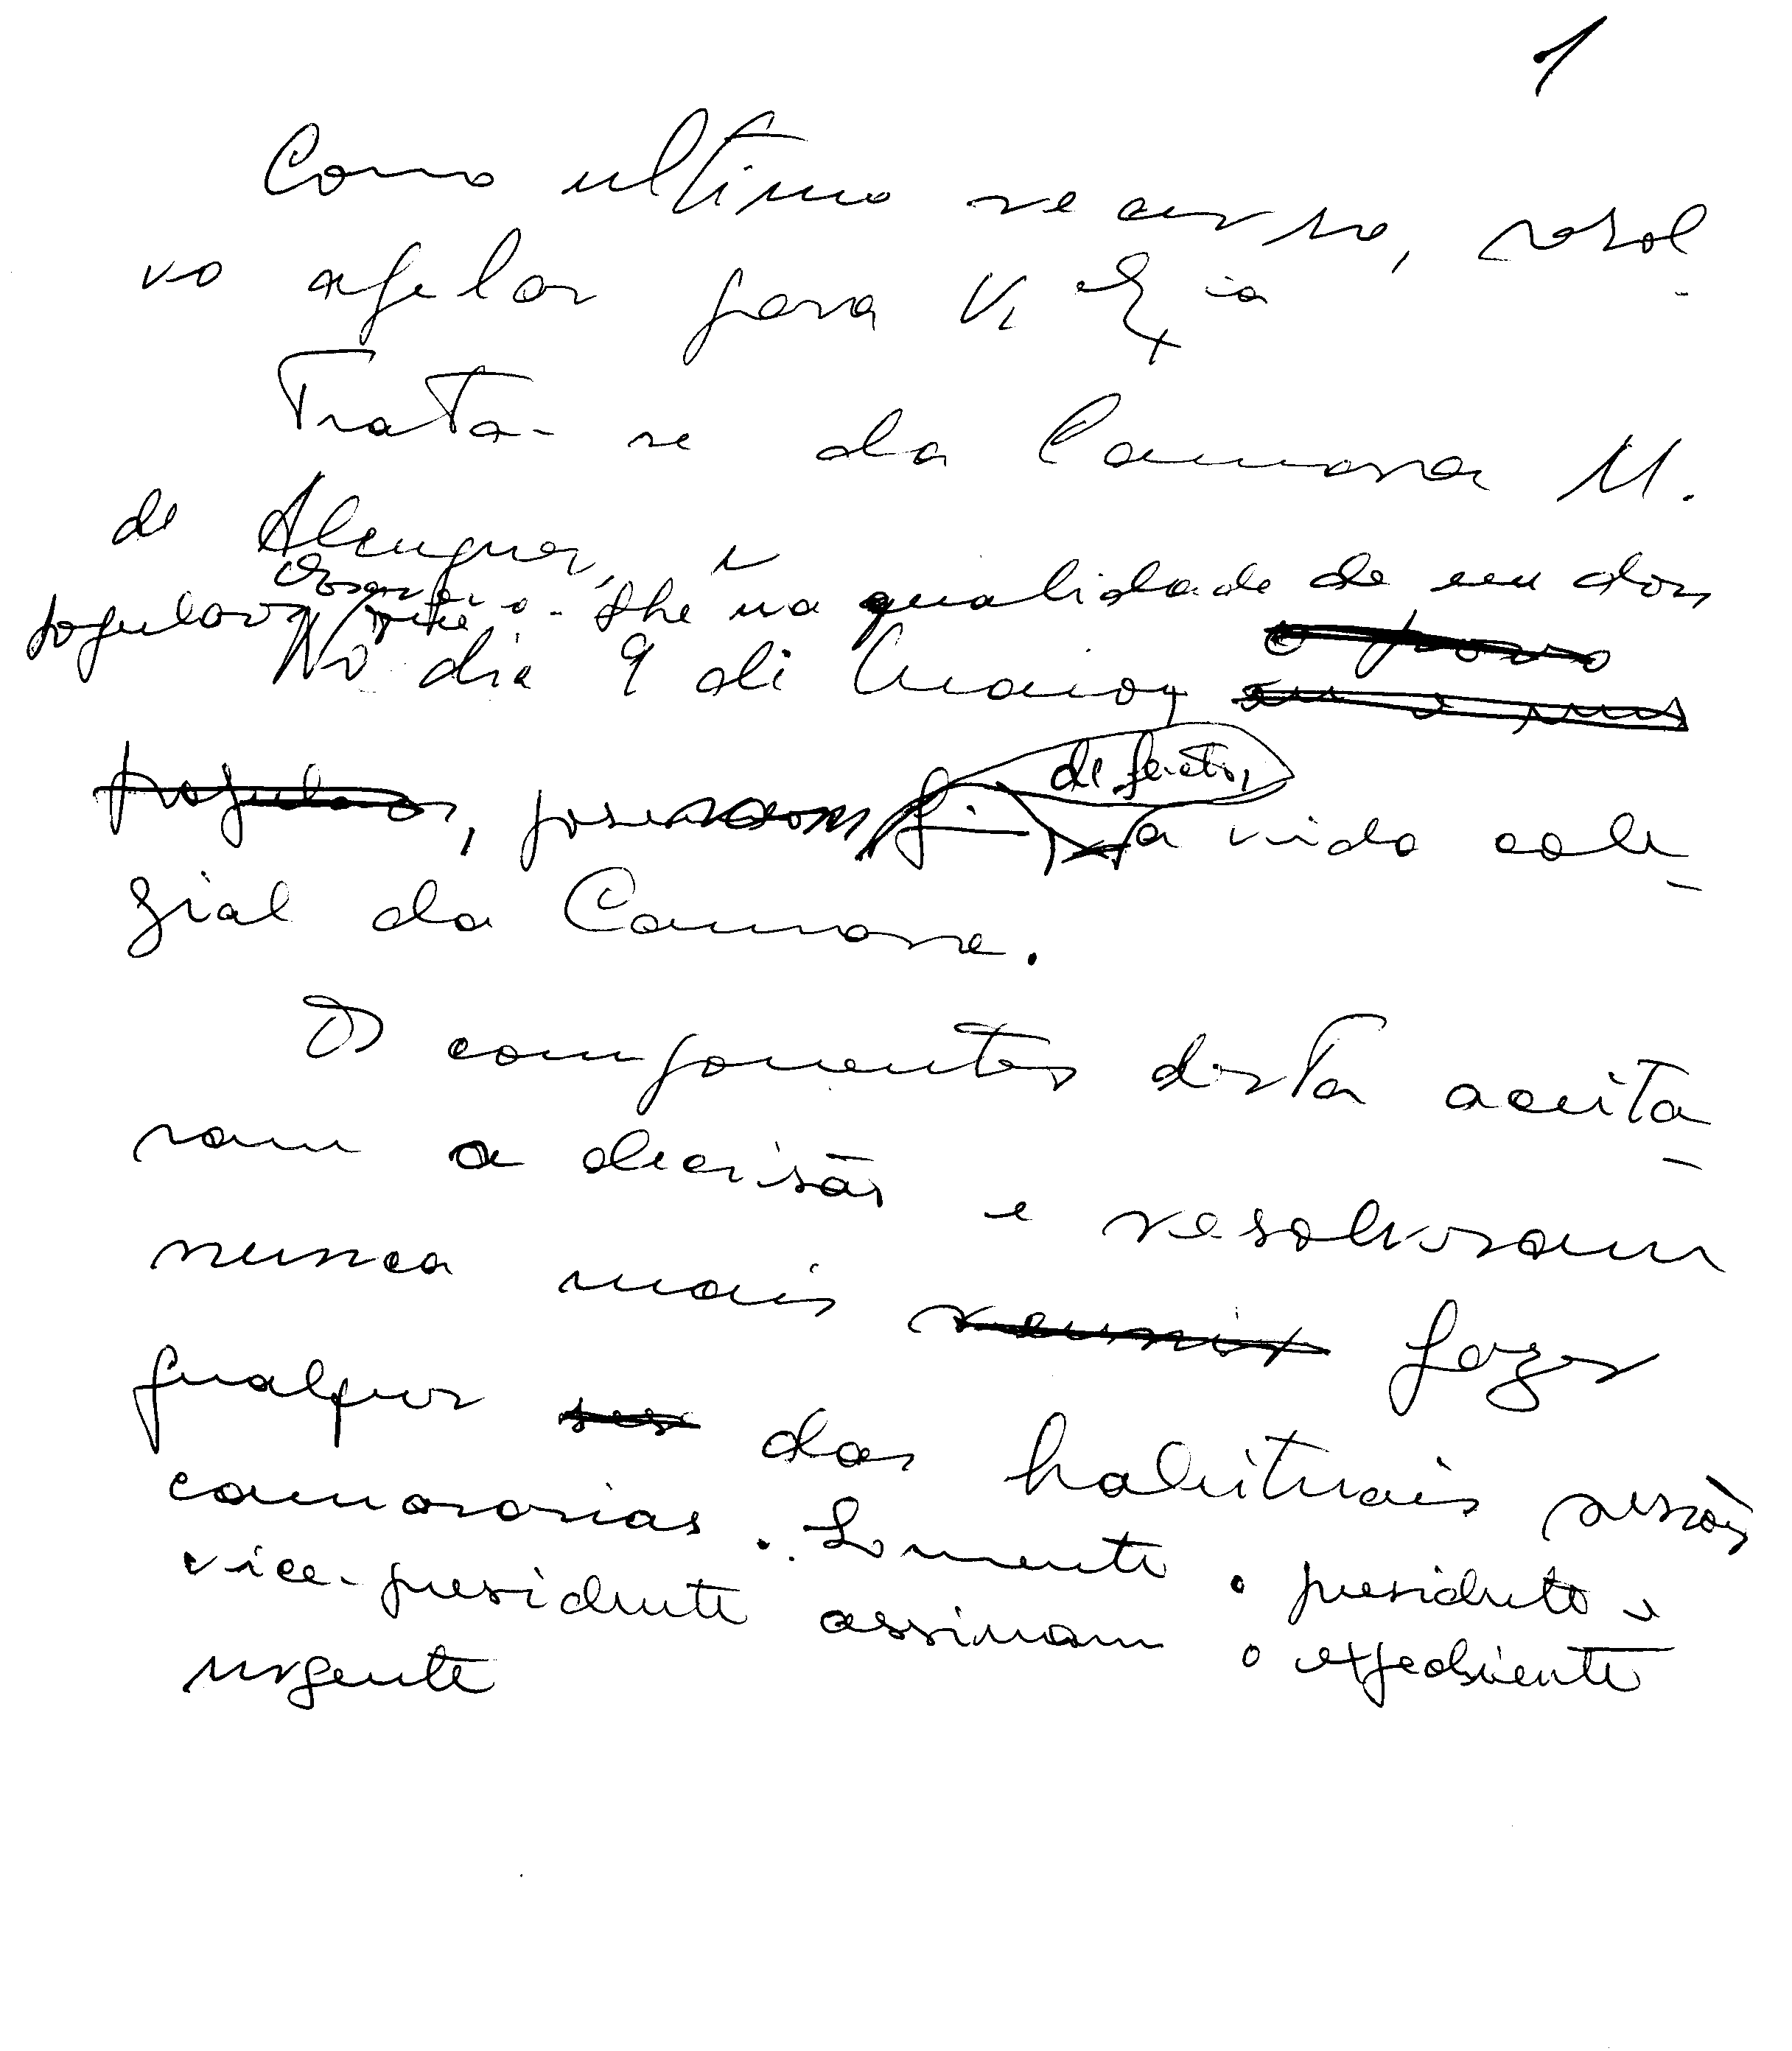 1
Como ultimo recurso, resol-
vo apelar para V. Ex.ia
Trata-se da Camara M.
de Alenquer, e
na qualidade de seu dos
populares
No dia 9 de Maio, o povo
populares, puseram fim, de facto, a vida cole-
gial da Camara.
Os componentes desta aceita-
ram a decisão e resolveram
nunca mais reunir fazer
qualquer ses das habituais sessões
camararias. Somente o presidente e
vice-presidente assinam o expediente
urgente